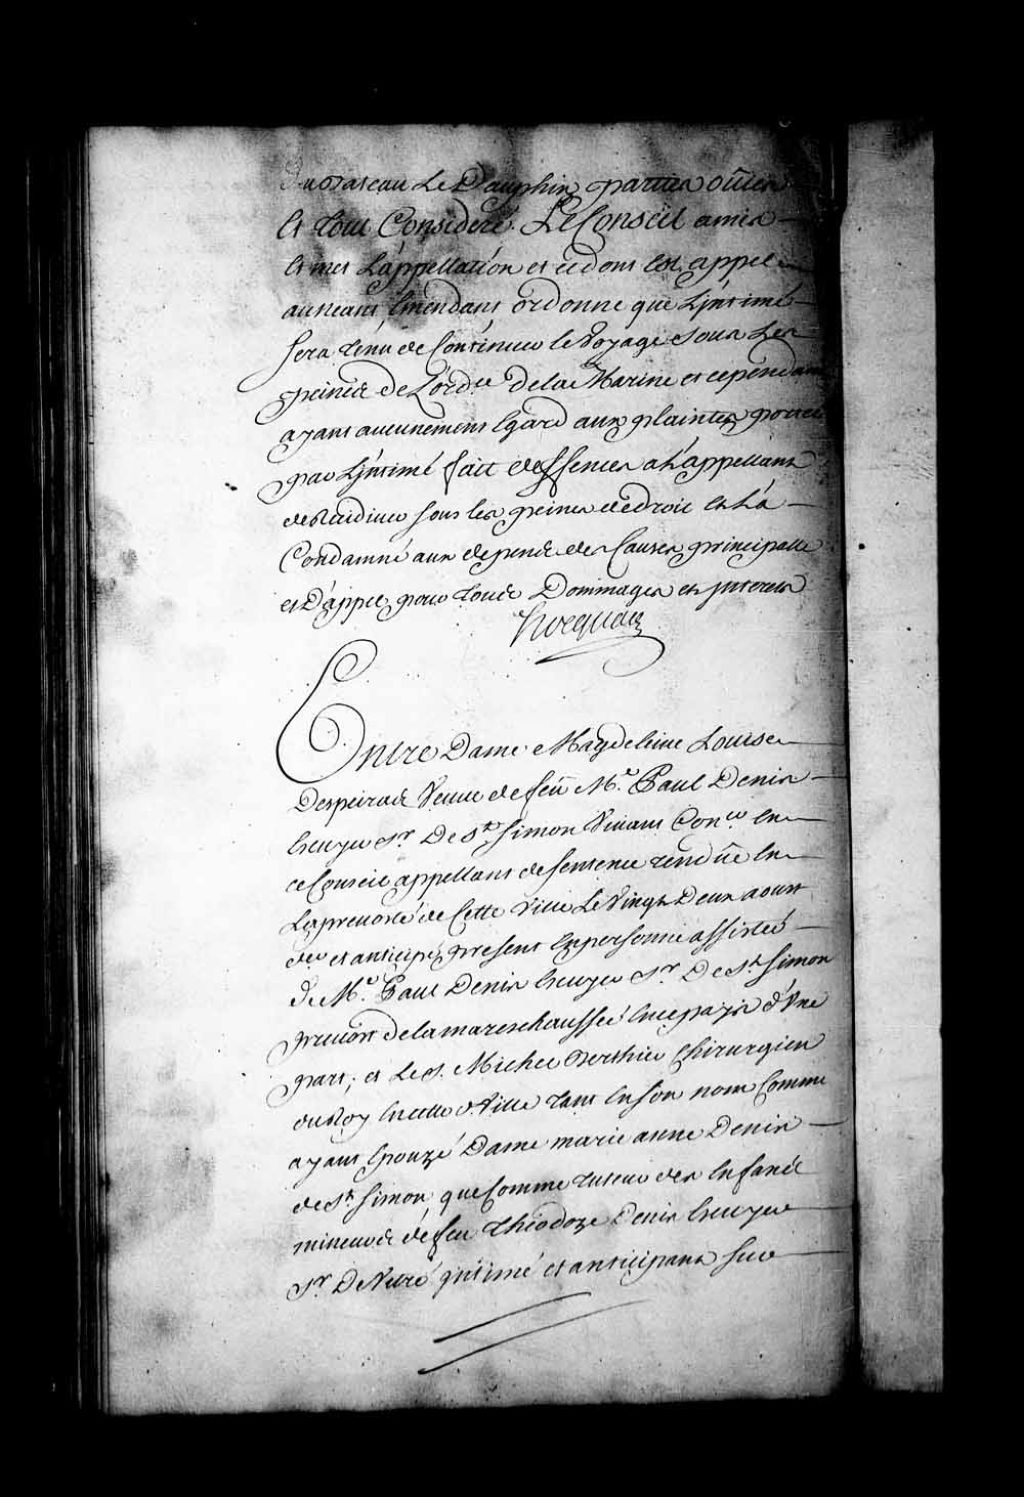 du Bateau Le Dauphin, parties ouies
Et tout Consideré. Le Conseil a mis
Et met L'appellation et ce dont Est appel
au neant, Emendant ordonne que L'jntimé
sera tenu de Continuer le Voyage sous Les
peines de L'ord.ce de la Marine et cependant
ayant aucunement Egard aux plaintes portées
par L'jntimé fait deffenses a L'appellant
de Recidiver sous les peines de droit Et L'a
Condamné aux depens des Causes principalle
et D'appel, pour tous Dommages et jnterests
Hocquart
Entre Dame Magdeleine Louise
Despeiras Veuve de feu M.e Paul Denis
Ecuyer s.r De S.t Simon Vivant Con.er En
ce Conseil appellant de sentence renduë En
La prevosté de Cette Ville Le Vingt Deux aoust
d.er et anticipé, present En personne assisteé
de M.e Paul Denis Ecuyer s.r De S.t Simon
prevost de la mareschausseé En ce pays d'Vne
part; et Le s. Michel Berthier Chirurgien
du Roy En cette Ville tant En son nom Comme
ayant Epouzé Dame marie anne Denis
de S.t Simon, que Comme tuteur des Enfans
mineurs de feu Theodoze Denis Ecuyer
s.r De Vitré jntimé et anticipant sur